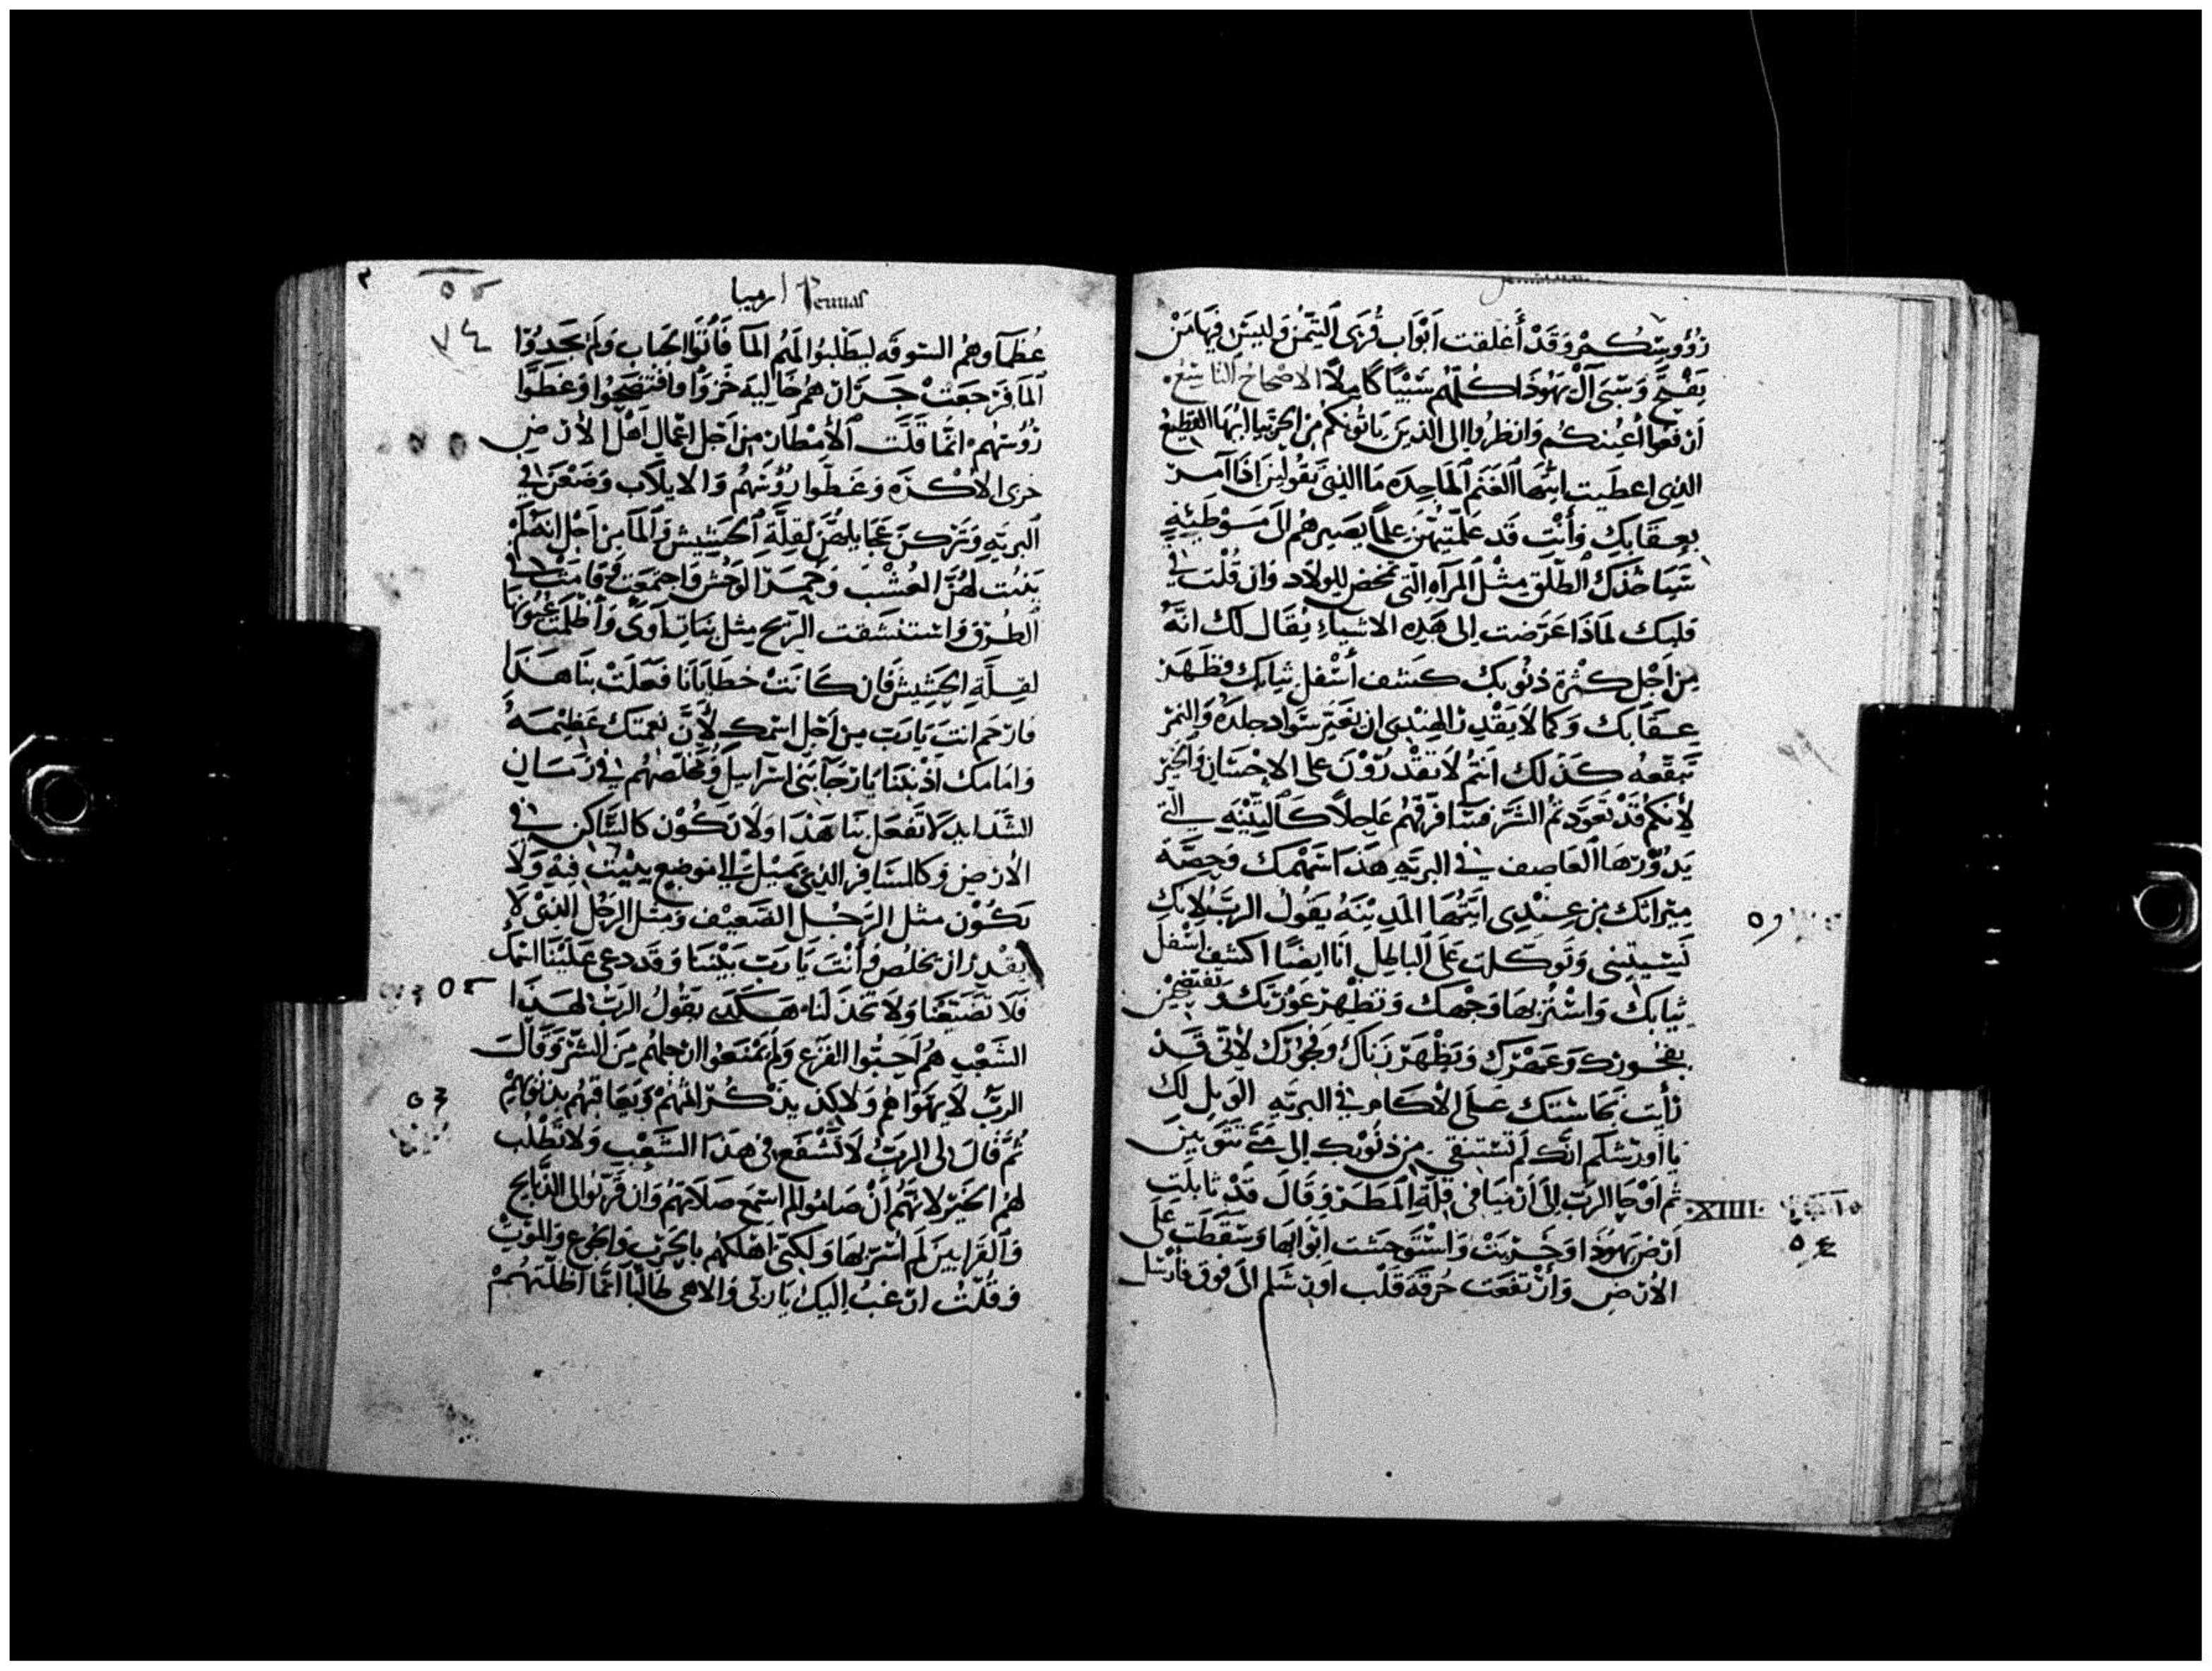 رؤوسكم وقد أغلقت أبواب قرى التيمن وليس فيها من
يفتح وسبى آل يهوذا كلهم سبيًا كاملًا الاصحاح التاسع
ارفعوا أعينكم وانظروا الى الذين ياتونكم من الجربيا ايها القطيع
الذي اعطيت ايتها الغنم الماجده ما الذي تقولين اذا امر
بعقابك وأنت قد علمتيهن علمًا يصيرهم لك موطئه
سياخذك الطلق مثل المراه التي تمخض للولاد وان قلت في
قلبك لماذا عرضت الى هذه الاشياء يقال لك انه
من اجل كثرة ذنوبك كشف أسفل ثيابك فظهر
عقابك وكما لا يقدر الهندي ان يغير سواد جلده والنمر
تبقعه كذلك انتم لا تقدرون على الاحسان والخير
لأنكم قد تعودتم الشر فسافرقهم عاجلًا كالتبنه التي
يدورها العاصف في البريه هذا سهمك وحصة
ميراثك من عندي ايتها المدينه يقول الرب لانك
نسيتيني وتوكلت على الباطل انا ايضًا اكشف اسفل
ثيابك واستر بها وجهك وتظهر عورتك وتفتضحين
بفجورك وعهرك ويظهر زناك وفجورك لأني قد
رأيت نجاستك على الأكام في البريه الويل لك
يا أورشلم انك لم تستنقي من ذنوبك الى متى تتوبين
ثم اوحا الرب الى ارميا في قلة المطر وقال قد تابلت
XIIII
ارض يهوذا وخربت واستوحشت ابوابها وسقطت على
الارض وارتفعت حرقة قلب اورشلم الى فوق فارسل
ارميا Jermias
عظماوهم السوقه ليطلبوا لهم الما فأتوا الجباب ولم يجدوا
الما فرجعت جرارهم خاليه خزوا وافتضحوا وغطوا
رؤسهم انما قلت الأمطار من اجل اعمال اهل الأرض
خزى الاكره وغطوا رؤسهم والايلات وضعن في
البريه وتركن عجايلهن لقلة الحشيش والما من اجل انه لم
ينبت لهن العشب وحمير الوحش واجتمعت وقامت في
الطرق واستنشقت الريح مثل بنات آوى وأظلمت عيونها
لقلة الحشيش فان كانت خطايانا فعلت بنا هذا
فارحم انت يا رب من اجل اسمك لأن نعمتك عظيمه
وامامك اذنبنا يا رجا بني اسراييل ومخلصهم في زمان
الشدايد لا تفعل بنا هذا ولا تكون كالساكن في
الأرض وكالمسافر الذي يميل الى موضع يبيت فيه ولا
تكون مثل الرجل الضعيف ومثل الرجل الذي لا
يقدر ان يخلص وأنت يا رب بيننا وقد دعي علينا اسمك
فلا تضيعنا ولا تخذلنا هكذى يقول الرب لهذا
الشعب هم احبوا الفزع ولم يمنعوا ارجلهم من الشر وقال
الرب لا يهواهم ولاكن يذكر اثمهم ويعاقبهم بذنوبهم
ثم قال لى الرب لا تشفع في هذا الشعب ولا تطلب
لهم الخير لانهم أن صاموا لم اسمع صلاتهم وان قربوا لى الذبايح
والقرابين لم اسر بها ولكني اهلكهم بالحرب والجوع والموت
وقلت ارغب اليك يا ربي والاهي طالبا انما اظلتهم